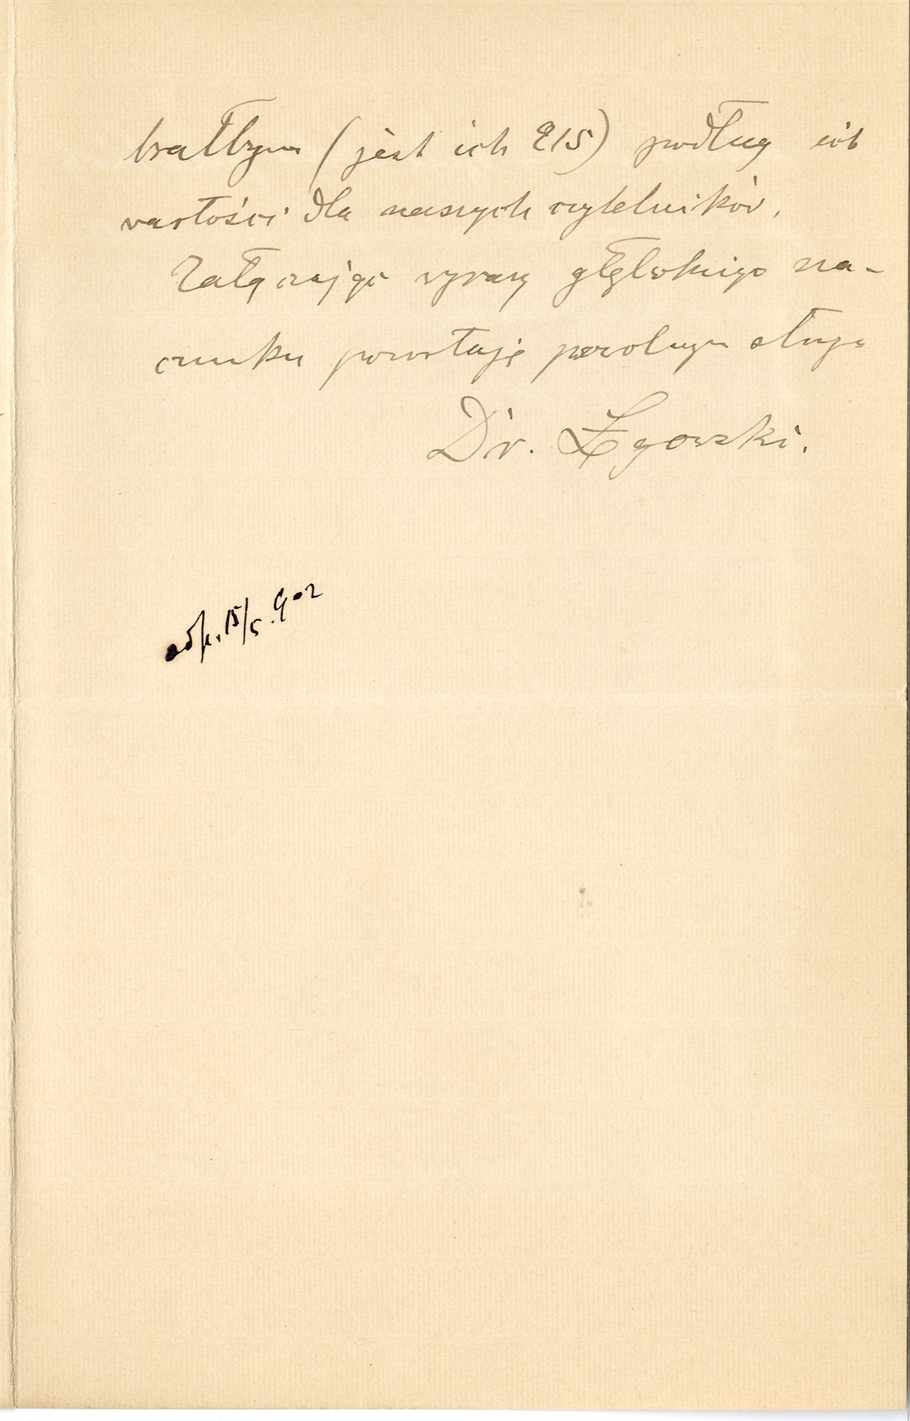 brałbym (jest ich 215) podług ich
wartości dla naszych czytelników.
Załączając wyrazy głębokiego sza-
cunku pozostaję powolnym sługą
Dr. Łgowski.
odp. 15/5. 902